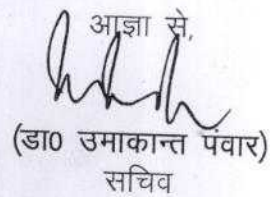 आज्ञा से,
(डा0 उमाकान्त पंवार)
सचिव